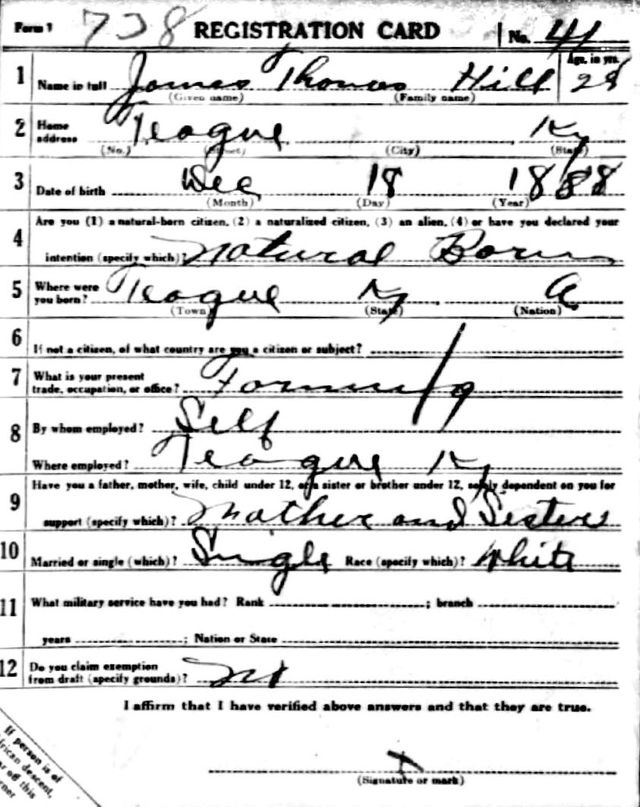 Form 1 738 REGISTRATION CARD No. 41
1 Name in full James Thomas Hill Age, in yrs. 28
(Given name) (Family name)
2 Home address Teague Ky
(No.) (Street) (City) (State)
3 Date of birth Dec 18 1888
(Month) (Day) (Year)
4 Are you (1) a natural-born citizen, (2) a naturalized citizen, (3) an alien, (4) or have you declared your
intention (specify which)? Natural Born
5 Where were you born? Teague Ky A
(Town) (State) (Nation)
6 If not a citizen, of what country are you a citizen or subject?
7 What is your present trade, occupation, or office? Farming
8 By whom employed? Self
Where employed? Teague Ky
9 Have you a father, mother, wife, child under 12, or a sister or brother under 12, solely dependent on you for
support (specify which)? Mother and Sisters
10 Married or single (which)? Single Race (specify which)? White
11 What military service have you had? Rank ; branch
years ; Nation or State
12 Do you claim exemption from draft (specify grounds)?
I affirm that I have verified above answers and that they are true.
x
(Signature or mark)
If person is of
African descent,
off this
corner